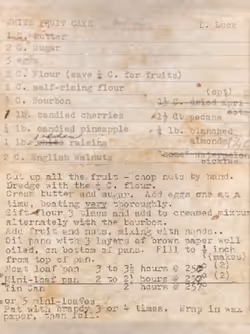 WHITE FRUIT CAKE D. Lock
Butter
2 C. Sugar
5 eggs
2 C. Flour (save ½ C. for fruits)
C. self-rising flour (opt)
C. Bourbon 1½ C. dried
1 lb. candied cherries pecans
½ lb. candied pineapple ½ lb. blanched
1 lb. golden raisins almonds
2 C. English Walnuts
Cut up all the fruit - chop nuts by hand.
Dredge with the ½ C. flour.
Cream butter and sugar. Add eggs one at a
time, beating very thoroughly.
Sift flour 3 times and add to creamed mixture
alternately with the bourbon.
Add fruit and nuts, mixing with hands.
Oil pans with 3 layers of brown paper well
oiled, on bottom of pans. Fill to inch
from top of pan. (makes)
Meat loaf pan 3 to 3½ hours @ 250° (2)
Mini-loaf pan 2 to 2½ hours @ 250° (2)
Tin Can 2 hours @ 250° (2)
or 5 mini-loaves
Pat with brandy 3 or 4 times. Wrap in wax
paper, then foil.